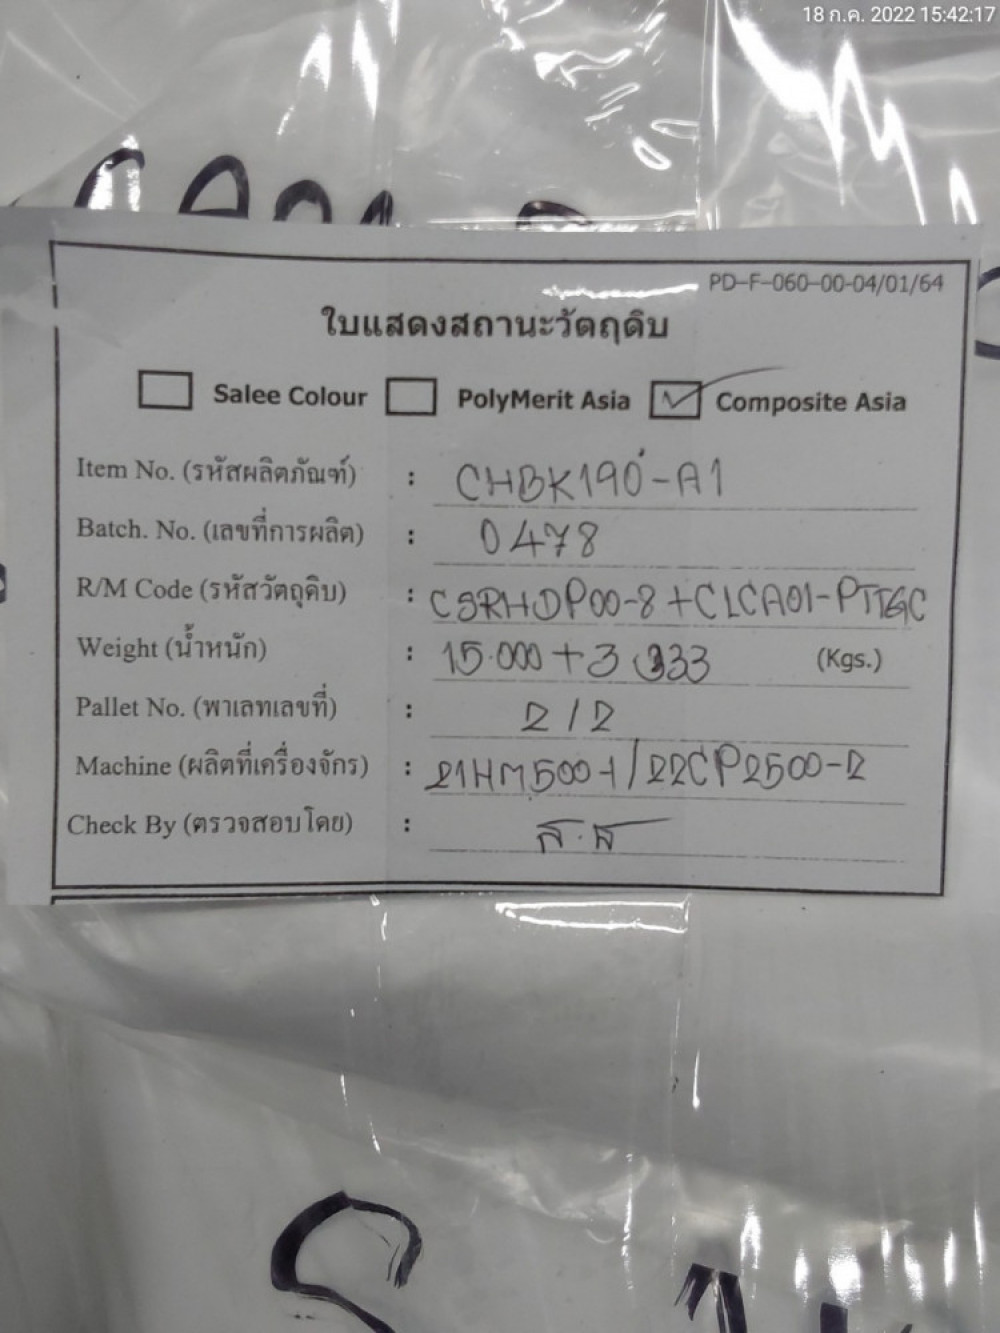 18 ก.ค. 2022 15:42:17
PD-F-060-00-04/01/64
ใบแสดงสถานะวัตถุดิบ
Salee Colour PolyMerit Asia Composite Asia
Item No. (รหัสผลิตภัณฑ์) : CHBK190-A1
Batch. No. (เลขที่การผลิต) : 0478
R/M Code (รหัสวัตถุดิบ) : CSRHDP00-8+CLCA01-PTTGC
Weight (น้ำหนัก) : 15.000+3.333 (Kgs.)
Pallet No. (พาเลทเลขที่) : 2/2
Machine (ผลิตที่เครื่องจักร) : 21HM500-1/22CP2500-2
Check By (ตรวจสอบโดย) : ส.ส